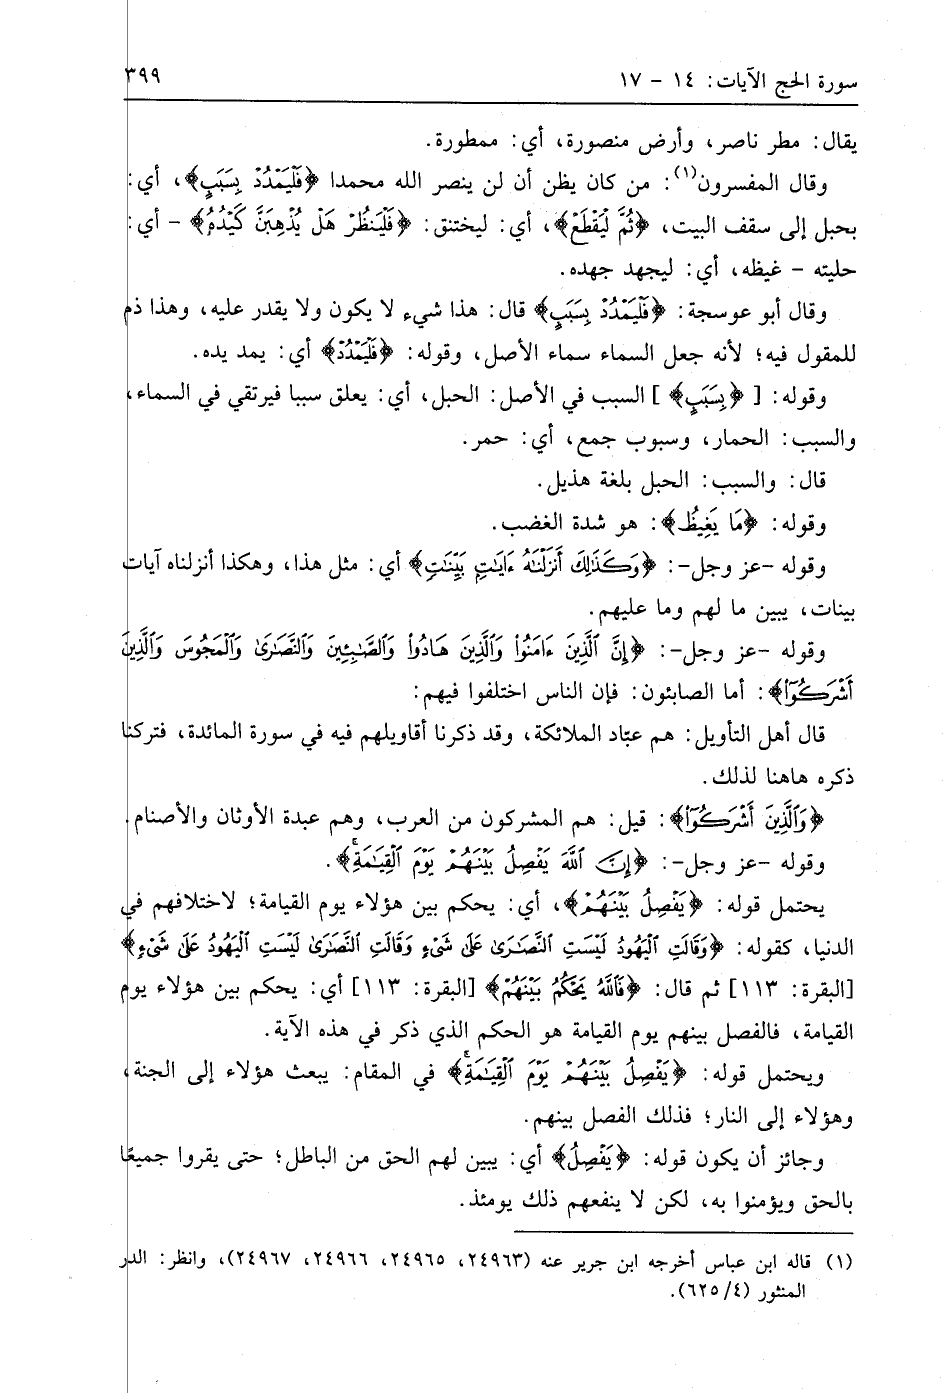 سورة الحج الآيات: ١٤ - ١٧
٣٩٩
يقال: مطر ناصر، وأرض منصورة، أي: ممطورة.
وقال المفسرون(١): من كان يظن أن لن ينصر الله محمدا ﴿فَلْيَمْدُدْ بِسَبَبٍ﴾، أي:
بحبل إلى سقف البيت، ﴿ثُمَّ لْيَقْطَعْ﴾، أي: ليختنق: ﴿فَلْيَنظُرْ هَلْ يُذْهِبَنَّ كَيْدُهُ﴾ - أي:
حليته - غيظه، أي: ليجهد جهده.
وقال أبو عوسجة: ﴿فَلْيَمْدُدْ بِسَبَبٍ﴾ قال: هذا شيء لا يكون ولا يقدر عليه، وهذا ذم
للمقول فيه؛ لأنه جعل السماء سماء الأصل، وقوله: ﴿فَلْيَمْدُدْ﴾ أي: يمد يده.
وقوله: [ ﴿بِسَبَبٍ﴾ ] السبب في الأصل: الحبل، أي: يعلق سببا فيرتقي في السماء،
والسبب: الحمار، وسبوب جمع، أي: حمر.
قال: والسبب: الحبل بلغة هذيل.
وقوله: ﴿مَا يَغِيظُ﴾: هو شدة الغضب.
وقوله -عز وجل-: ﴿وَكَذَٰلِكَ أَنزَلْنَٰهُ ءَايَٰتٍ بَيِّنَٰتٍ﴾ أي: مثل هذا، وهكذا أنزلناه آيات
بينات، يبين ما لهم وما عليهم.
وقوله -عز وجل-: ﴿إِنَّ ٱلَّذِينَ ءَامَنُوا۟ وَٱلَّذِينَ هَادُوا۟ وَٱلصَّٰبِـِٔينَ وَٱلنَّصَٰرَىٰ وَٱلْمَجُوسَ وَٱلَّذِينَ
أَشْرَكُوٓا۟﴾: أما الصابئون: فإن الناس اختلفوا فيهم:
قال أهل التأويل: هم عبّاد الملائكة، وقد ذكرنا أقاويلهم فيه في سورة المائدة، فتركنا
ذكره هاهنا لذلك.
﴿وَٱلَّذِينَ أَشْرَكُوٓا۟﴾: قيل: هم المشركون من العرب، وهم عبدة الأوثان والأصنام.
وقوله -عز وجل-: ﴿إِنَّ ٱللَّهَ يَفْصِلُ بَيْنَهُمْ يَوْمَ ٱلْقِيَٰمَةِۚ﴾.
يحتمل قوله: ﴿يَفْصِلُ بَيْنَهُمْ﴾، أي: يحكم بين هؤلاء يوم القيامة؛ لاختلافهم في
الدنيا، كقوله: ﴿وَقَالَتِ ٱلْيَهُودُ لَيْسَتِ ٱلنَّصَٰرَىٰ عَلَىٰ شَىْءٍ وَقَالَتِ ٱلنَّصَٰرَىٰ لَيْسَتِ ٱلْيَهُودُ عَلَىٰ شَىْءٍ﴾
[البقرة: ١١٣] ثم قال: ﴿فَٱللَّهُ يَحْكُمُ بَيْنَهُمْ﴾ [البقرة: ١١٣] أي: يحكم بين هؤلاء يوم
القيامة، فالفصل بينهم يوم القيامة هو الحكم الذي ذكر في هذه الآية.
ويحتمل قوله: ﴿يَفْصِلُ بَيْنَهُمْ يَوْمَ ٱلْقِيَٰمَةِۚ﴾ في المقام: يبعث هؤلاء إلى الجنة،
وهؤلاء إلى النار؛ فذلك الفصل بينهم.
وجائز أن يكون قوله: ﴿يَفْصِلُ﴾ أي: يبين لهم الحق من الباطل؛ حتى يقروا جميعًا
بالحق ويؤمنوا به، لكن لا ينفعهم ذلك يومئذ.
(١) قاله ابن عباس أخرجه ابن جرير عنه (٢٤٩٦٣، ٢٤٩٦٥، ٢٤٩٦٦، ٢٤٩٦٧)، وانظر: الدر
المنثور (٤/ ٦٢٥).